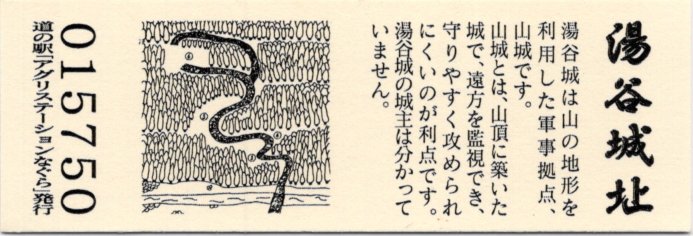 湯谷城址
湯谷城は山の地形を
利用した軍事拠点、
山城です。
山城とは、山頂に築いた
城で、遠方を監視でき、
守りやすく攻められ
にくいのが利点です。
湯谷城の城主は分かって
いません。
015750
道の駅「アグリステーションなぐら」発行